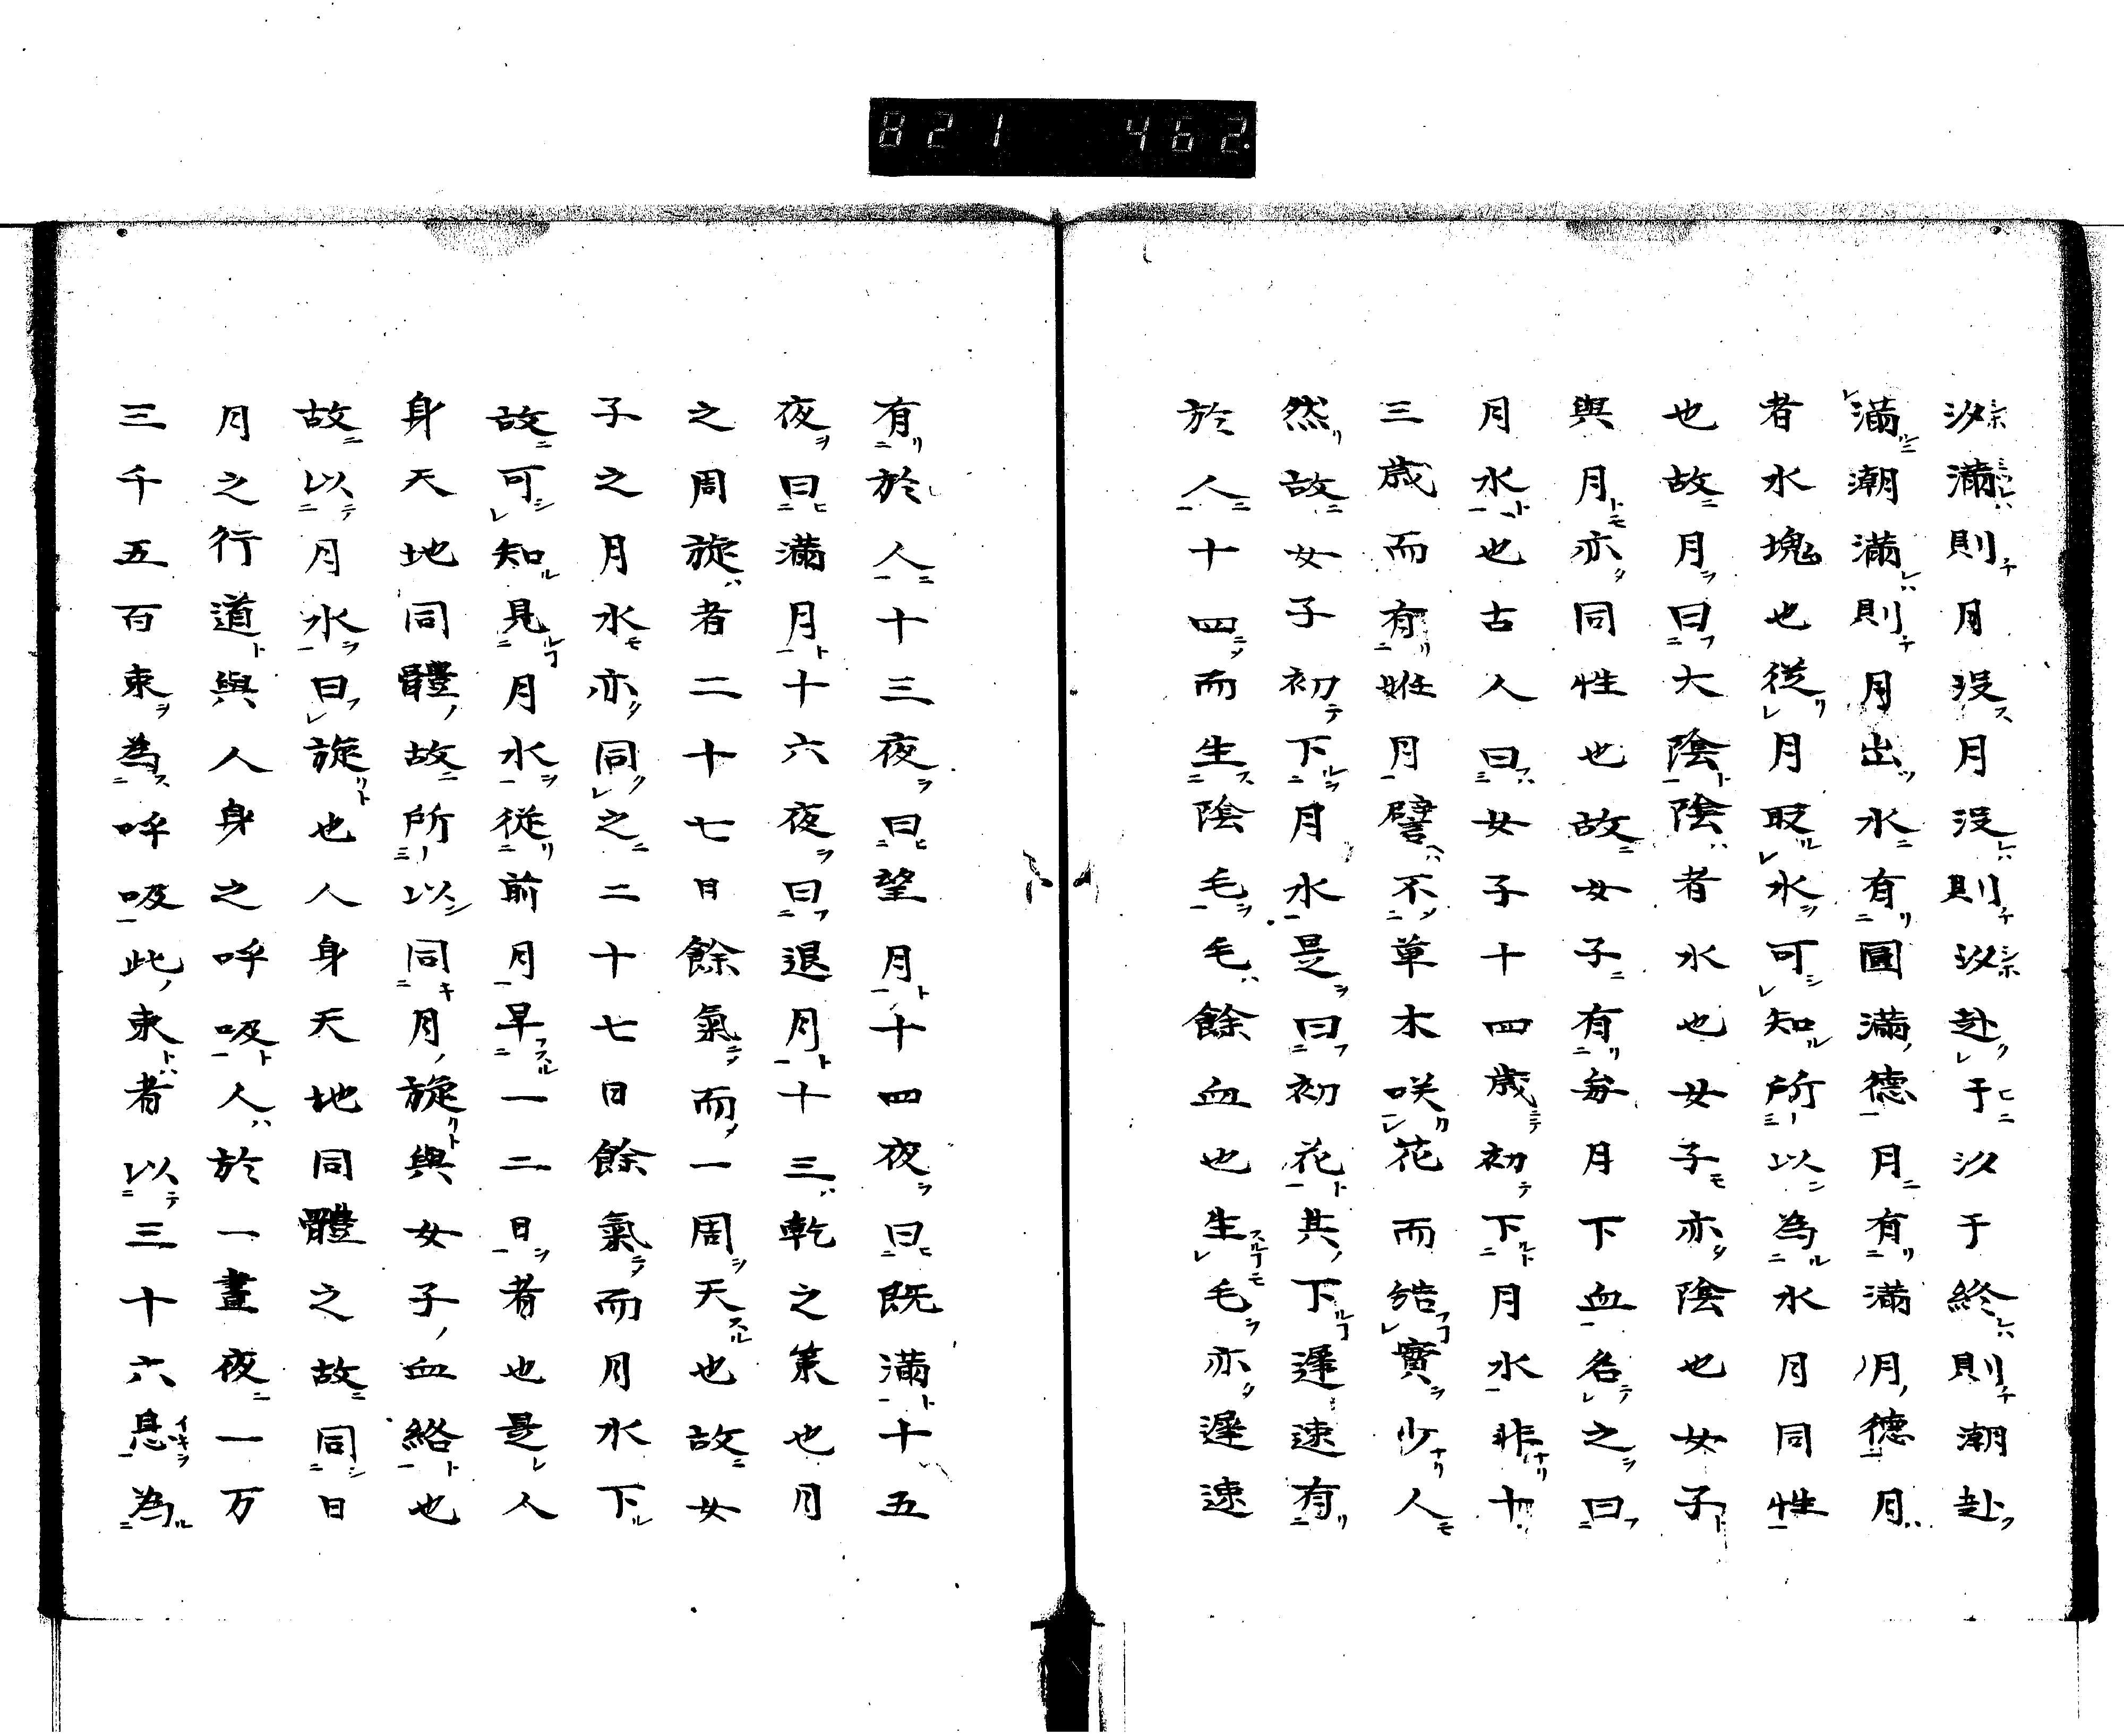 821 462.
汐満則月没月没則汐赴于汐于終則潮赴
満潮満則月出水有圓満德月有満月德月
者水塊也従月取水可知所以為水月同性
也故月曰大陰陰者水也女子亦陰也女子
與月亦同性也故女子有每月下血名之曰
月水也古人曰女子十四歳初下月水非十
三歳而有姙月譬不草木咲花而結實少人
然故女子初下月水是曰初花其下遲速有
於人十四而生陰毛毛餘血也生毛亦遲速
有於人十三夜曰望月十四夜曰既満十五
夜曰満月十六夜曰退月十三乾之策也月
之周旋者二十七日餘氣而一周天也故女
子之月水亦同之二十七日餘氣而月水下
故可知見月水従前月早一二日者也是人
身天地同體故所以同月旋與女子血絡也
故以月水曰旋也人身天地同體之故同日
月之行道與人身之呼吸人於一晝夜一万
三千五百束為呼吸此束者以三十六息為